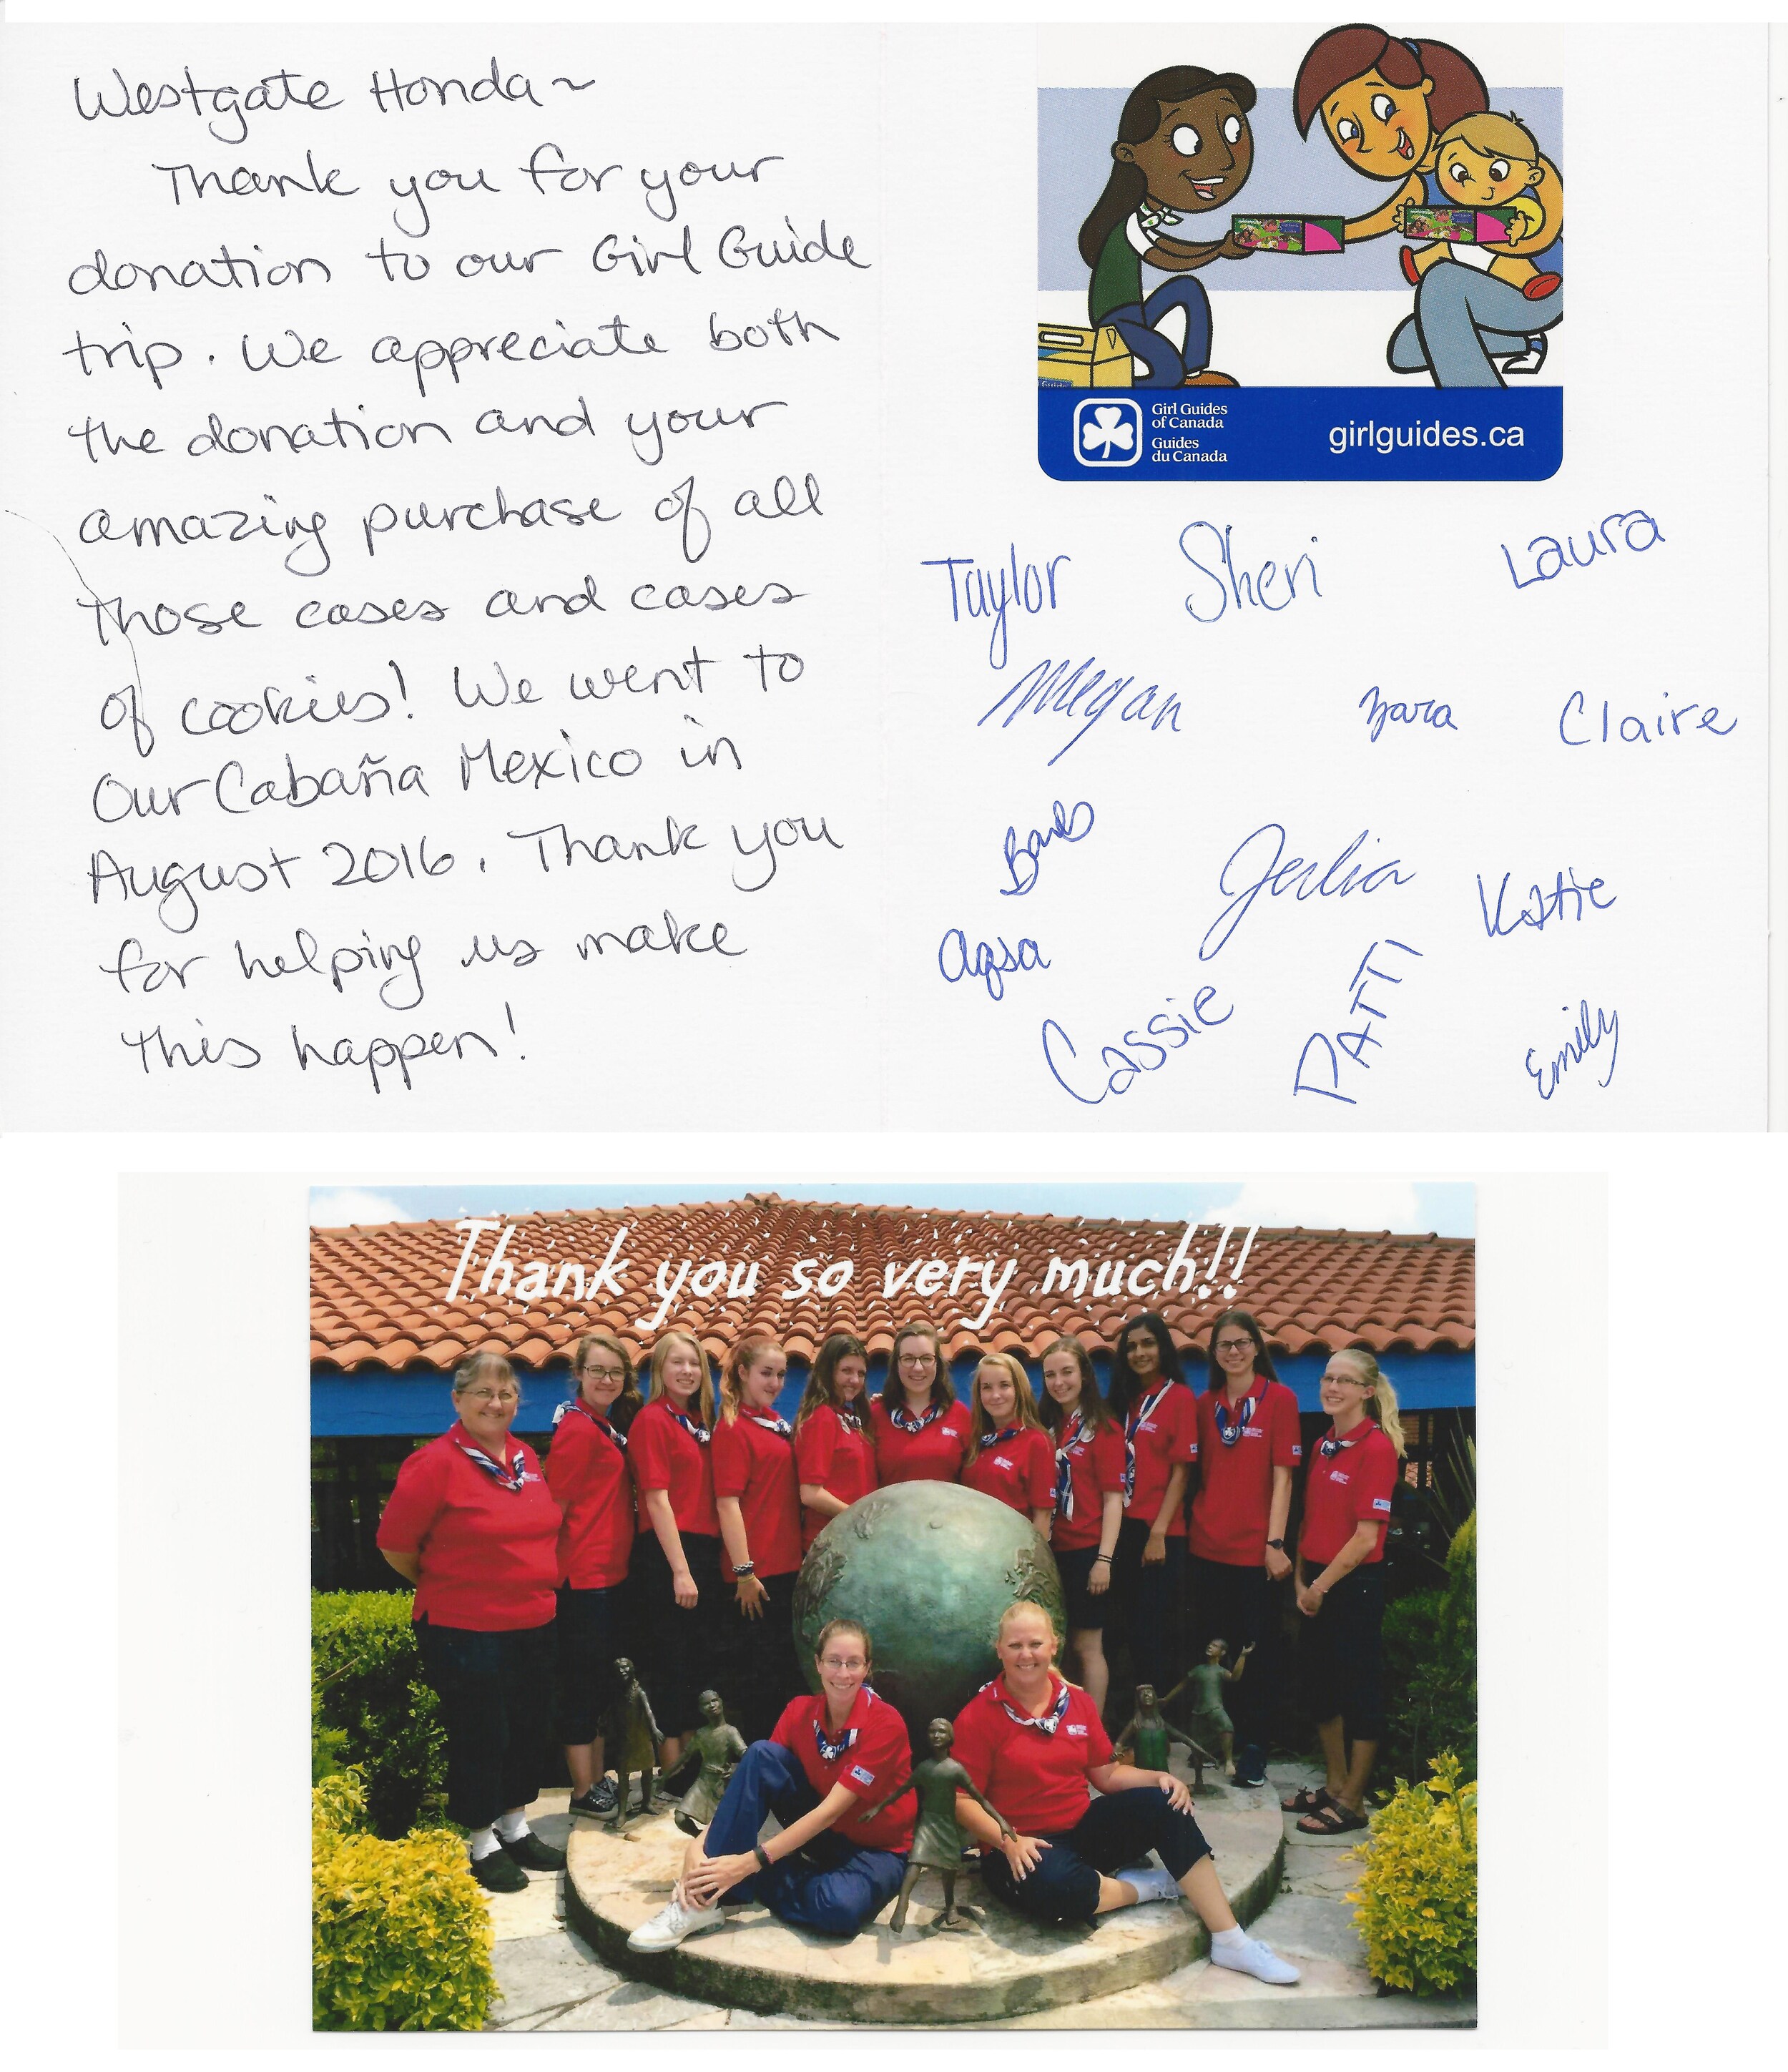 Westgate Honda~
Thank you for your
donation to our Girl Guide
trip. We appreciate both
the donation and your
amazing purchase of all
those cases and cases
of cookies! We went to
Our Cabaña Mexico in
August 2016. Thank you
for helping us make
this happen!
Girl Guides
of Canada
Guides
du Canada
girlguides.ca
Taylor Sheri Laura
Megan Zara Claire
Barb Julia Katie
Aqsa Cassie PATTI Emily
Thank you so very much!!